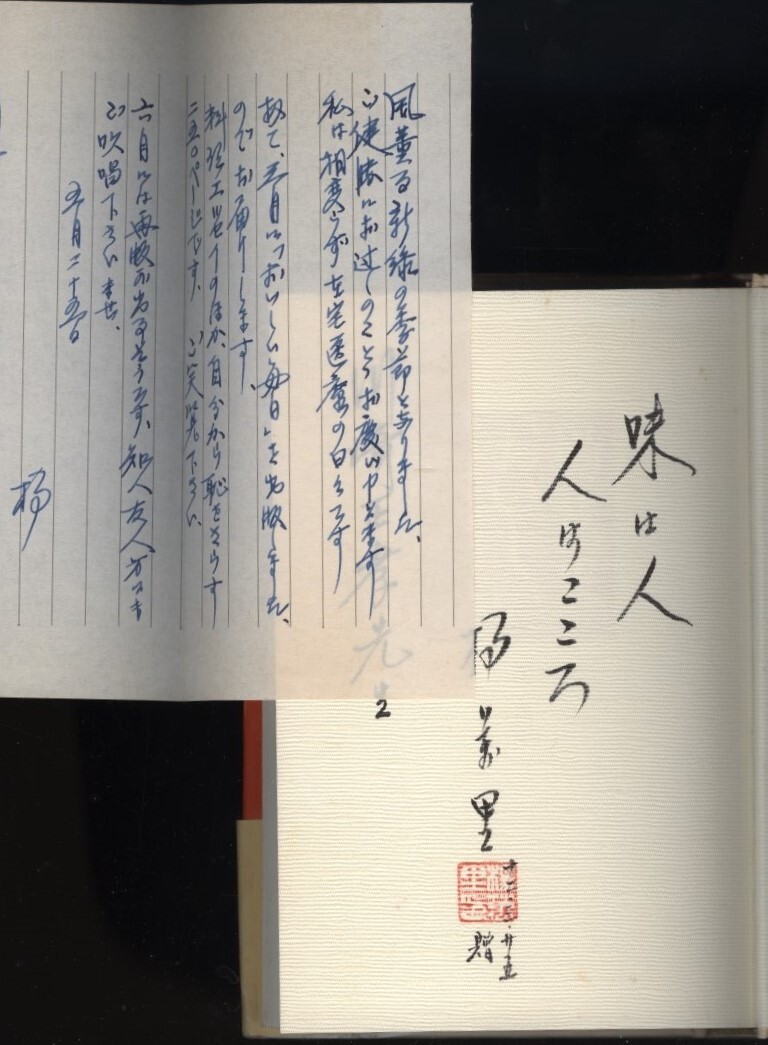 風薫る新緑の季節となりました、
ご健勝にお過しのことゝお慶び申上ます
私は相変らず在宅医療の日々です
さて、三月に「おいしい毎日」を出版しました、
のでお届けします、
料理エッセイのほか、自分から恥をさらす
二五〇ページです、ご笑覧下さい、
六月には再版が出るそうです、知人友人方にも
ご吹唱下さいませ、
五月二十五日
楊
味は人
人はこころ
楊
萬里
先生
十二・五・廿五
贈